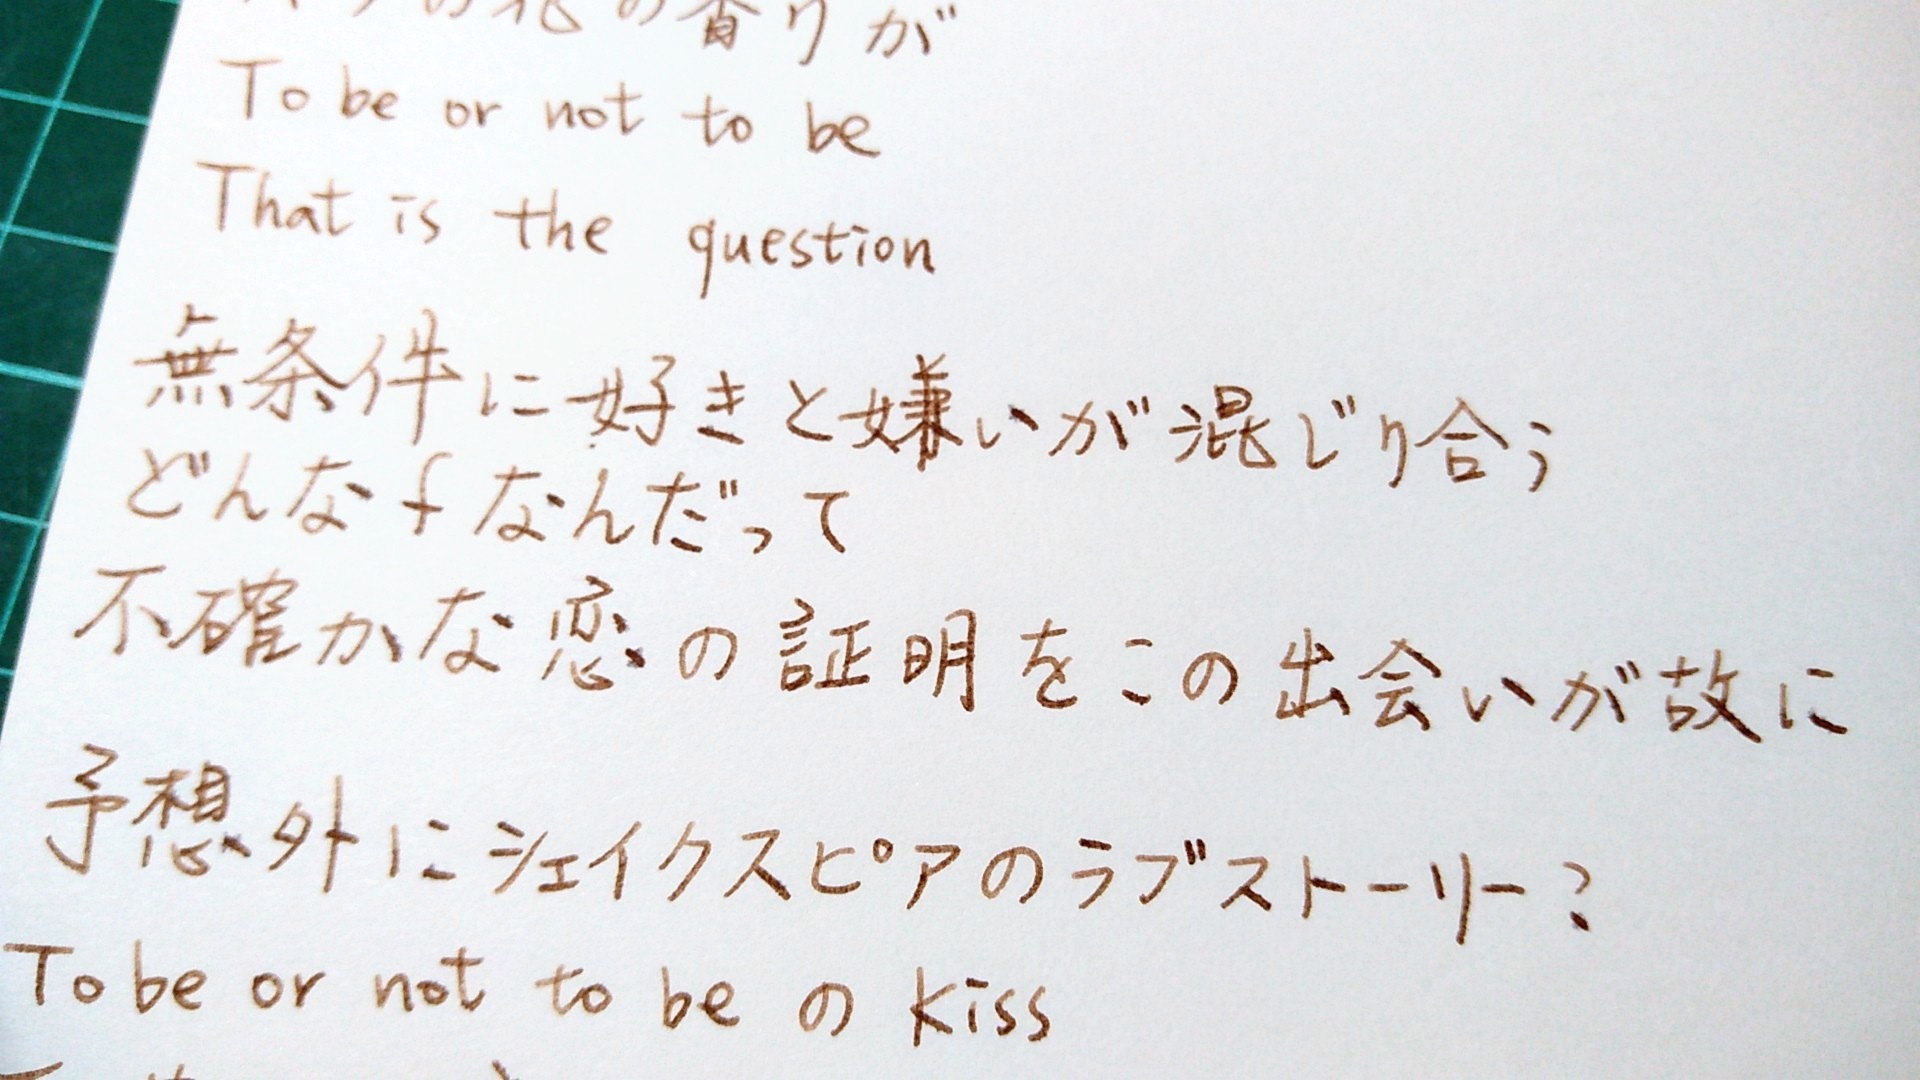 の花の香りが
To be or not to be
That is the question
無条件に好きと嫌いが混じり合う
どんなfなんだって
不確かな恋の証明をこの出会いが故に
予想外にシェイクスピアのラブストーリー?
To be or not to be の kiss